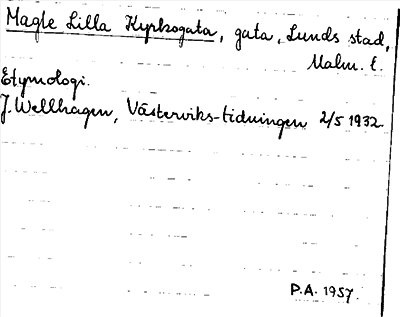 Magle Lilla Kyrkogata, gata, Lunds stad,
Malm. l.
Etymologi.
J. Wellhagen, Västerviks-tidningen 2/5 1932.
P.A. 1957.